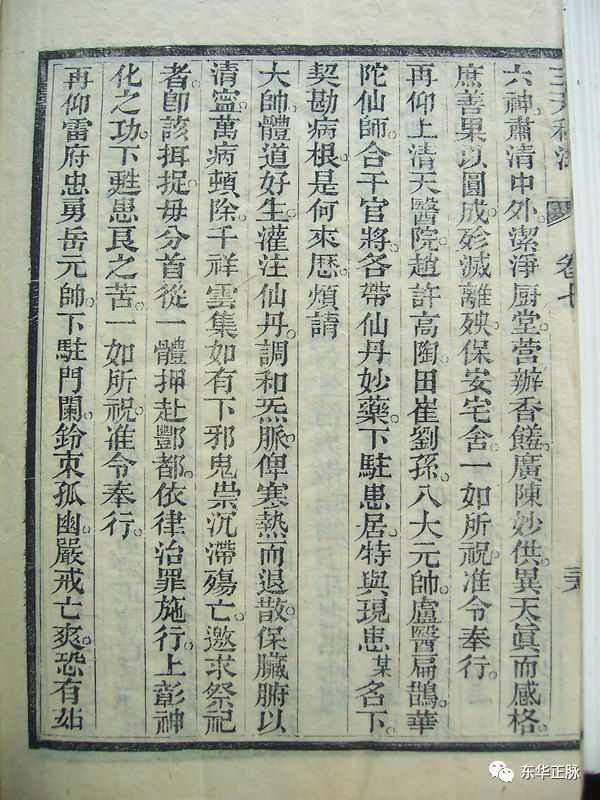 卷七
六神肅清中外潔淨厨堂营辦香饈廣陳妙供異天眞而感格
庶善果以圓成殄滅離殃保安宅舍一如所祝准令奉行
再仰上清天醫院趙許高陶田崔劉孫八大元帥盧醫扁鵲華
陀仙師合干官將各帶仙丹妙藥下駐患居特與現患某名下
契勘病根是何來歷煩請
大帥體道好生灌注仙丹調和炁脈俾寒熱而退散保臟腑以
清寧萬病頓除千祥雲集如有下邪鬼祟沉滯殤亡邀求祭祀
者卽該捐捉毋分首從一體押赴酆都依律治罪施行上彰神
化之功下甦患艮之苦一如所祝准令奉行
再仰雷府忠勇岳元帥下駐門闌鈐束孤幽嚴戒亡爽恐有姑
东华正脉